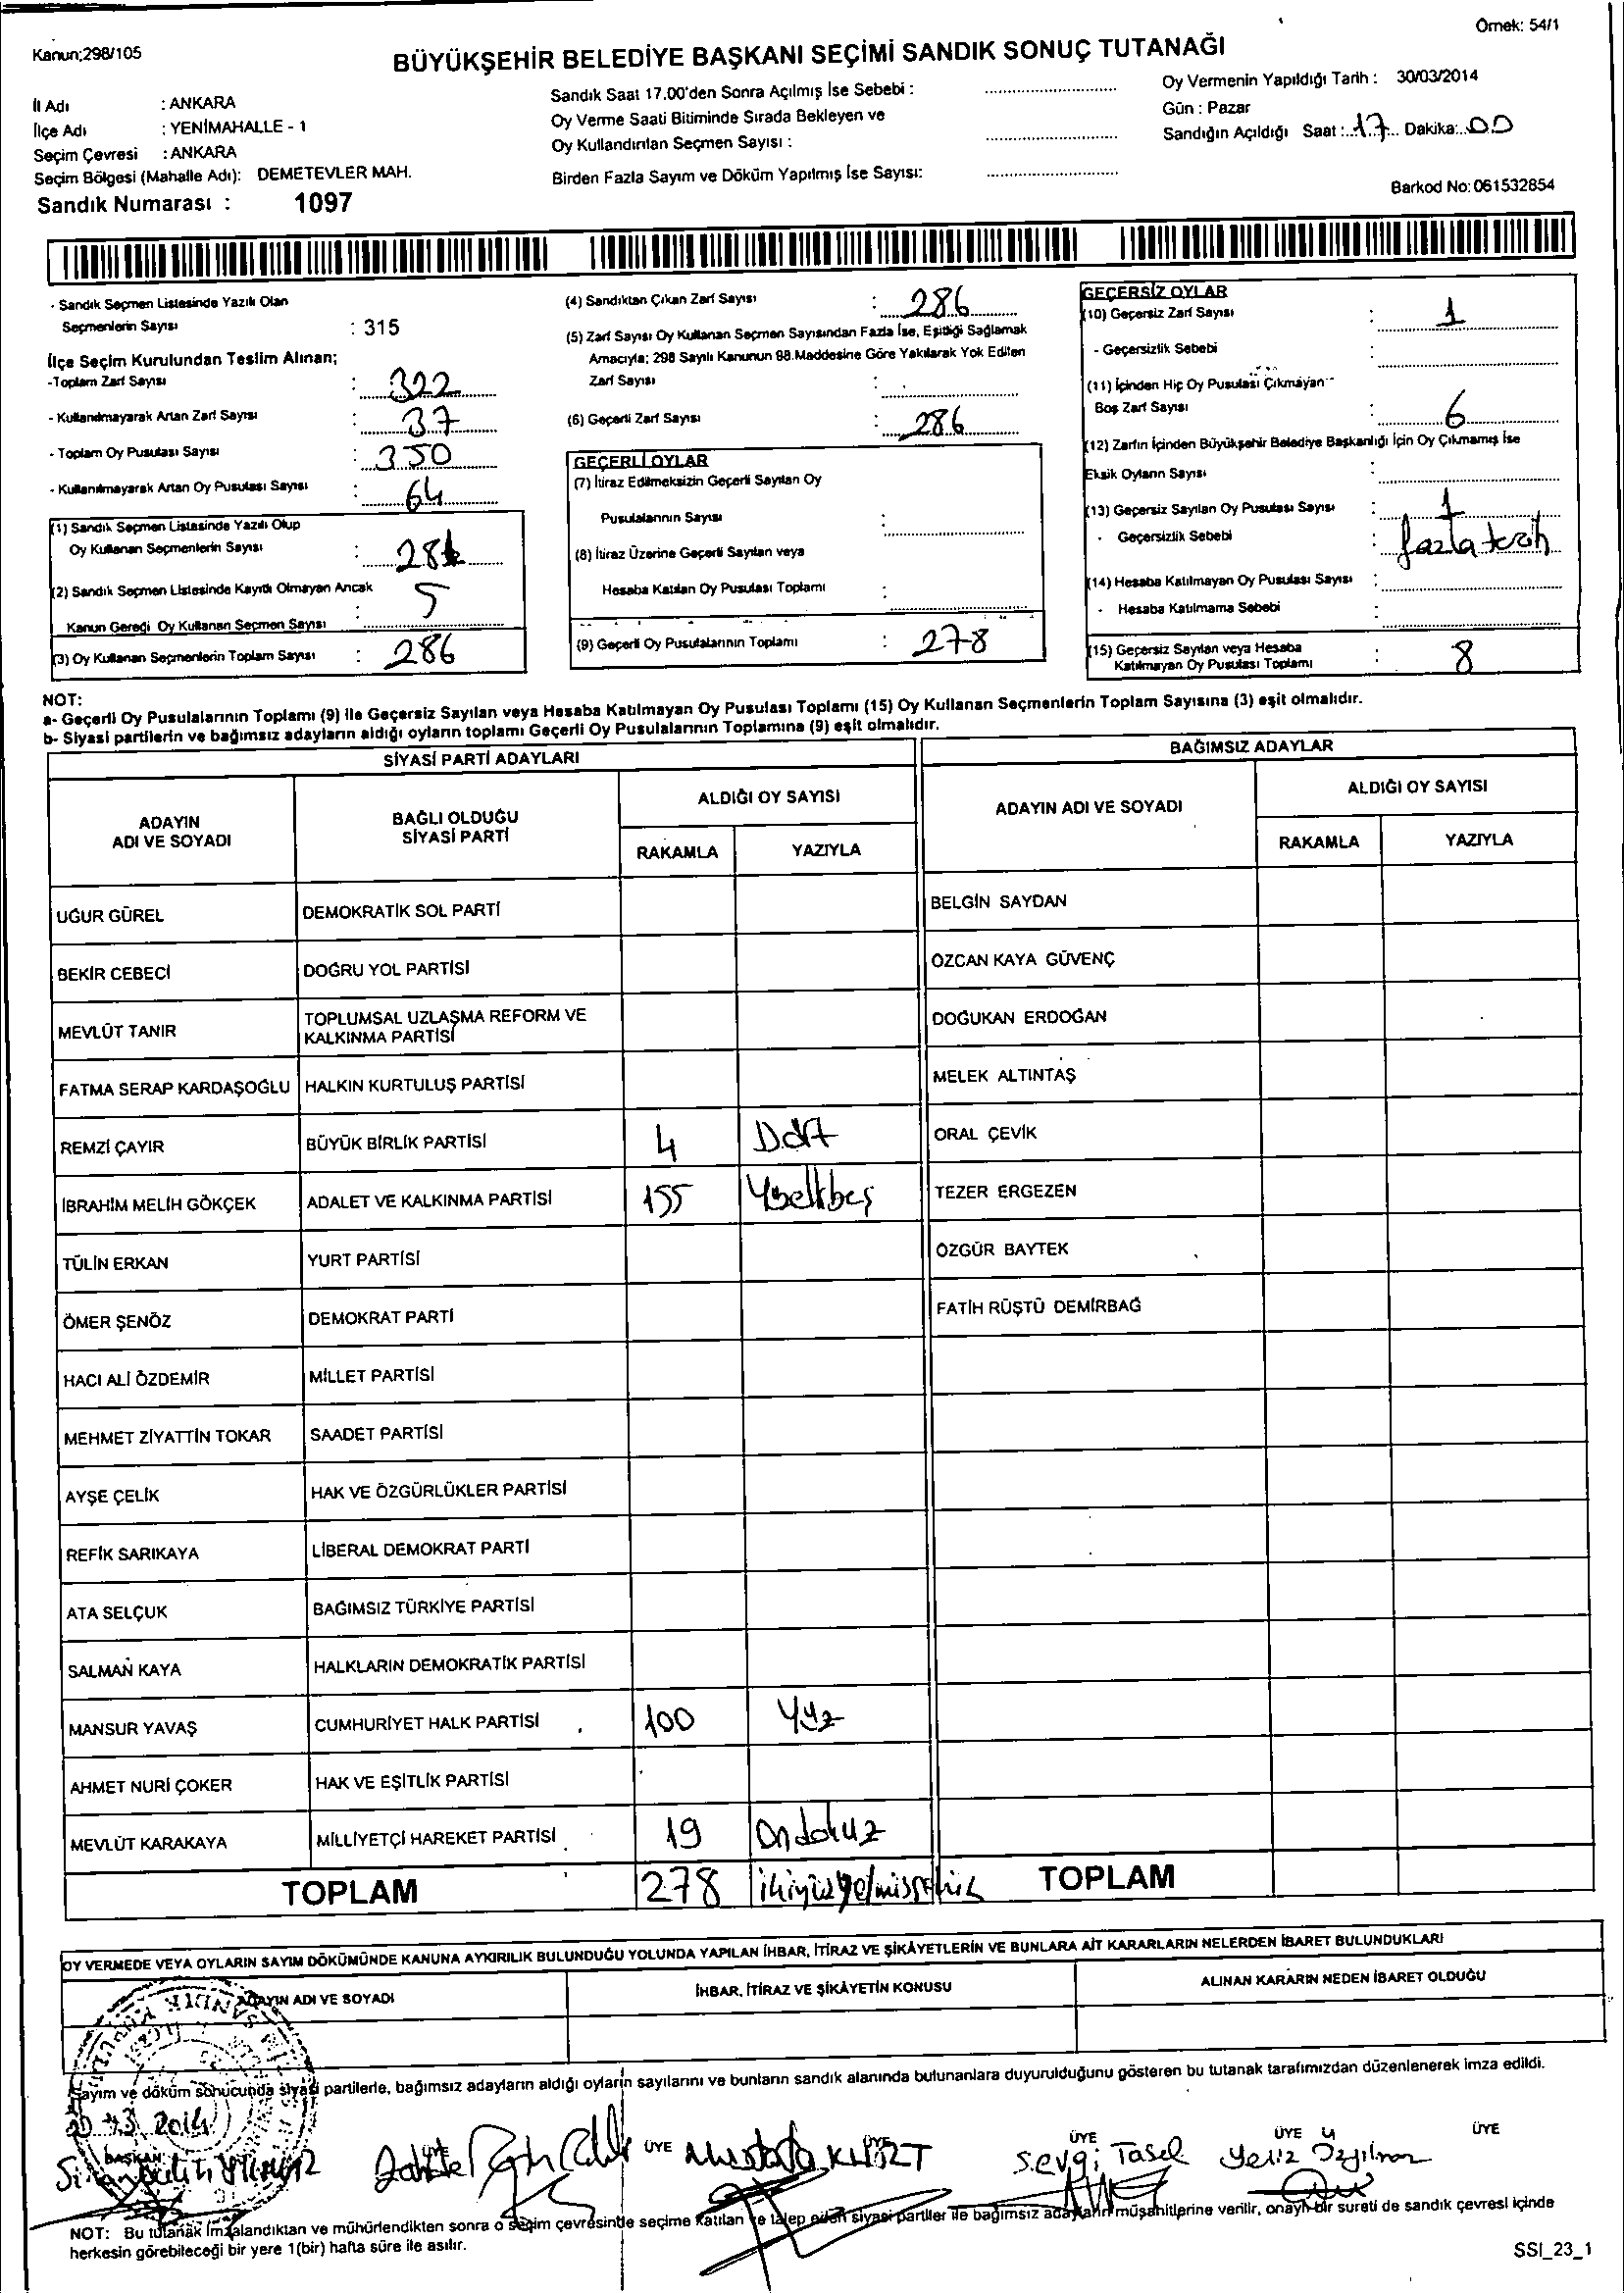 Örnek: 54/1
Kanun:298/105
BÜYÜKŞEHİR BELEDİYE BAŞKANI SEÇİMİ SANDIK SONUÇ TUTANAĞI
İl Adı : ANKARA
İlçe Adı : YENİMAHALLE - 1
Seçim Çevresi : ANKARA
Seçim Bölgesi (Mahalle Adı): DEMETEVLER MAH.
Sandık Numarası : 1097
Sandık Saat 17.00'den Sonra Açılmış İse Sebebi :
Oy Verme Saati Bitiminde Sırada Bekleyen ve
Oy Kullandırılan Seçmen Sayısı :
Birden Fazla Sayım ve Döküm Yapılmış İse Sayısı:
Oy Vermenin Yapıldığı Tarih : 30/03/2014
Gün : Pazar
Sandığın Açıldığı Saat : 17 Dakika: 00
Barkod No: 061532854
- Sandık Seçmen Listesinde Yazılı Olan
Seçmenlerin Sayısı : 315
İlçe Seçim Kurulundan Teslim Alınan;
-Toplam Zarf Sayısı : 322
- Kullanılmayarak Artan Zarf Sayısı : 37
- Toplam Oy Pusulası Sayısı : 350
- Kullanılmayarak Artan Oy Pusulası Sayısı : 64
(1) Sandık Seçmen Listesinde Yazılı Olup
Oy Kullanan Seçmenlerin Sayısı :
(2) Sandık Seçmen Listesinde Kayıtlı Olmayan Ancak
Kanun Gereği Oy Kullanan Seçmen Sayısı : 5
(3) Oy Kullanan Seçmenlerin Toplam Sayısı : 286
(4) Sandıktan Çıkan Zarf Sayısı : 286
(5) Zarf Sayısı Oy Kullanan Seçmen Sayısından Fazla İse, Eşitliği Sağlamak
Amacıyla; 298 Sayılı Kanunun 98.Maddesine Göre Yakılarak Yok Edilen
Zarf Sayısı :
(6) Geçerli Zarf Sayısı : 286
GEÇERLİ OYLAR
(7) İtiraz Edilmeksizin Geçerli Sayılan Oy
Pusulalarının Sayısı :
(8) İtiraz Üzerine Geçerli Sayılan veya
Hesaba Katılan Oy Pusulası Toplamı :
(9) Geçerli Oy Pusulalarının Toplamı : 278
GEÇERSİZ OYLAR
(10) Geçersiz Zarf Sayısı : 1
- Geçersizlik Sebebi :
(11) İçinden Hiç Oy Pusulası Çıkmayan
Boş Zarf Sayısı : 6
(12) Zarfın İçinden Büyükşehir Belediye Başkanlığı İçin Oy Çıkmamış İse
Eksik Oyların Sayısı :
(13) Geçersiz Sayılan Oy Pusulası Sayısı : 1
- Geçersizlik Sebebi : fazla tercih
(14) Hesaba Katılmayan Oy Pusulası Sayısı :
- Hesaba Katılmama Sebebi :
(15) Geçersiz Sayılan veya Hesaba
Katılmayan Oy Pusulası Toplamı : 8
NOT:
a- Geçerli Oy Pusulalarının Toplamı (9) ile Geçersiz Sayılan veya Hesaba Katılmayan Oy Pusulası Toplamı (15) Oy Kullanan Seçmenlerin Toplam Sayısına (3) eşit olmalıdır.
b- Siyasi partilerin ve bağımsız adayların aldığı oyların toplamı Geçerli Oy Pusulalarının Toplamına (9) eşit olmalıdır.
SİYASİ PARTİ ADAYLARI
BAĞIMSIZ ADAYLAR
ADAYIN ADI VE SOYADI
BAĞLI OLDUĞU SİYASİ PARTİ
ALDIĞI OY SAYISI
RAKAMLA YAZIYLA
ADAYIN ADI VE SOYADI
ALDIĞI OY SAYISI
RAKAMLA YAZIYLA
UĞUR GÜREL DEMOKRATİK SOL PARTİ BELGİN SAYDAN
BEKİR CEBECİ DOĞRU YOL PARTİSİ ÖZCAN KAYA GÜVENÇ
MEVLÜT TANIR TOPLUMSAL UZLAŞMA REFORM VE KALKINMA PARTİSİ DOĞUKAN ERDOĞAN
FATMA SERAP KARDAŞOĞLU HALKIN KURTULUŞ PARTİSİ MELEK ALTINTAŞ
REMZİ ÇAYIR BÜYÜK BİRLİK PARTİSİ 4 Dört ORAL ÇEVİK
İBRAHİM MELİH GÖKÇEK ADALET VE KALKINMA PARTİSİ 155 TEZER ERGEZEN
TÜLİN ERKAN YURT PARTİSİ ÖZGÜR BAYTEK
ÖMER ŞENÖZ DEMOKRAT PARTİ FATİH RÜŞTÜ DEMİRBAĞ
HACI ALİ ÖZDEMİR MİLLET PARTİSİ
MEHMET ZİYATTİN TOKAR SAADET PARTİSİ
AYŞE ÇELİK HAK VE ÖZGÜRLÜKLER PARTİSİ
REFİK SARIKAYA LİBERAL DEMOKRAT PARTİ
ATA SELÇUK BAĞIMSIZ TÜRKİYE PARTİSİ
SALMAN KAYA HALKLARIN DEMOKRATİK PARTİSİ
MANSUR YAVAŞ CUMHURİYET HALK PARTİSİ 100 Yüz
AHMET NURİ ÇOKER HAK VE EŞİTLİK PARTİSİ
MEVLÜT KARAKAYA MİLLİYETÇİ HAREKET PARTİSİ 19 Ondokuz
TOPLAM 278 TOPLAM
OY VERMEDE VEYA OYLARIN SAYIM DÖKÜMÜNDE KANUNA AYKIRILIK BULUNDUĞU YOLUNDA YAPILAN İHBAR, İTİRAZ VE ŞİKÂYETLERİN VE BUNLARA AİT KARARLARIN NELERDEN İBARET BULUNDUKLARI
ADAYIN ADI VE SOYADI İHBAR, İTİRAZ VE ŞİKÂYETİN KONUSU ALINAN KARARIN NEDEN İBARET OLDUĞU
Sayım ve döküm sonucunda siyasi partilerle, bağımsız adayların aldığı oyların sayılarını ve bunların sandık alanında bulunanlara duyurulduğunu gösteren bu tutanak tarafımızdan düzenlenerek imza edildi.
2014
BAŞKAN ÜYE ÜYE ÜYE ÜYE ÜYE
Mustafa KURT Sevgi Tasel Yeliz Özyılmaz
NOT: Bu tutanak imzalandıktan ve mühürlendikten sonra o seçim çevresinde seçime katılan ve talep eden siyasi partiler ile bağımsız adayların müşahitlerine verilir, onaylı bir sureti de sandık çevresi içinde
herkesin görebileceği bir yere 1(bir) hafta süre ile asılır.
SSI_23_1